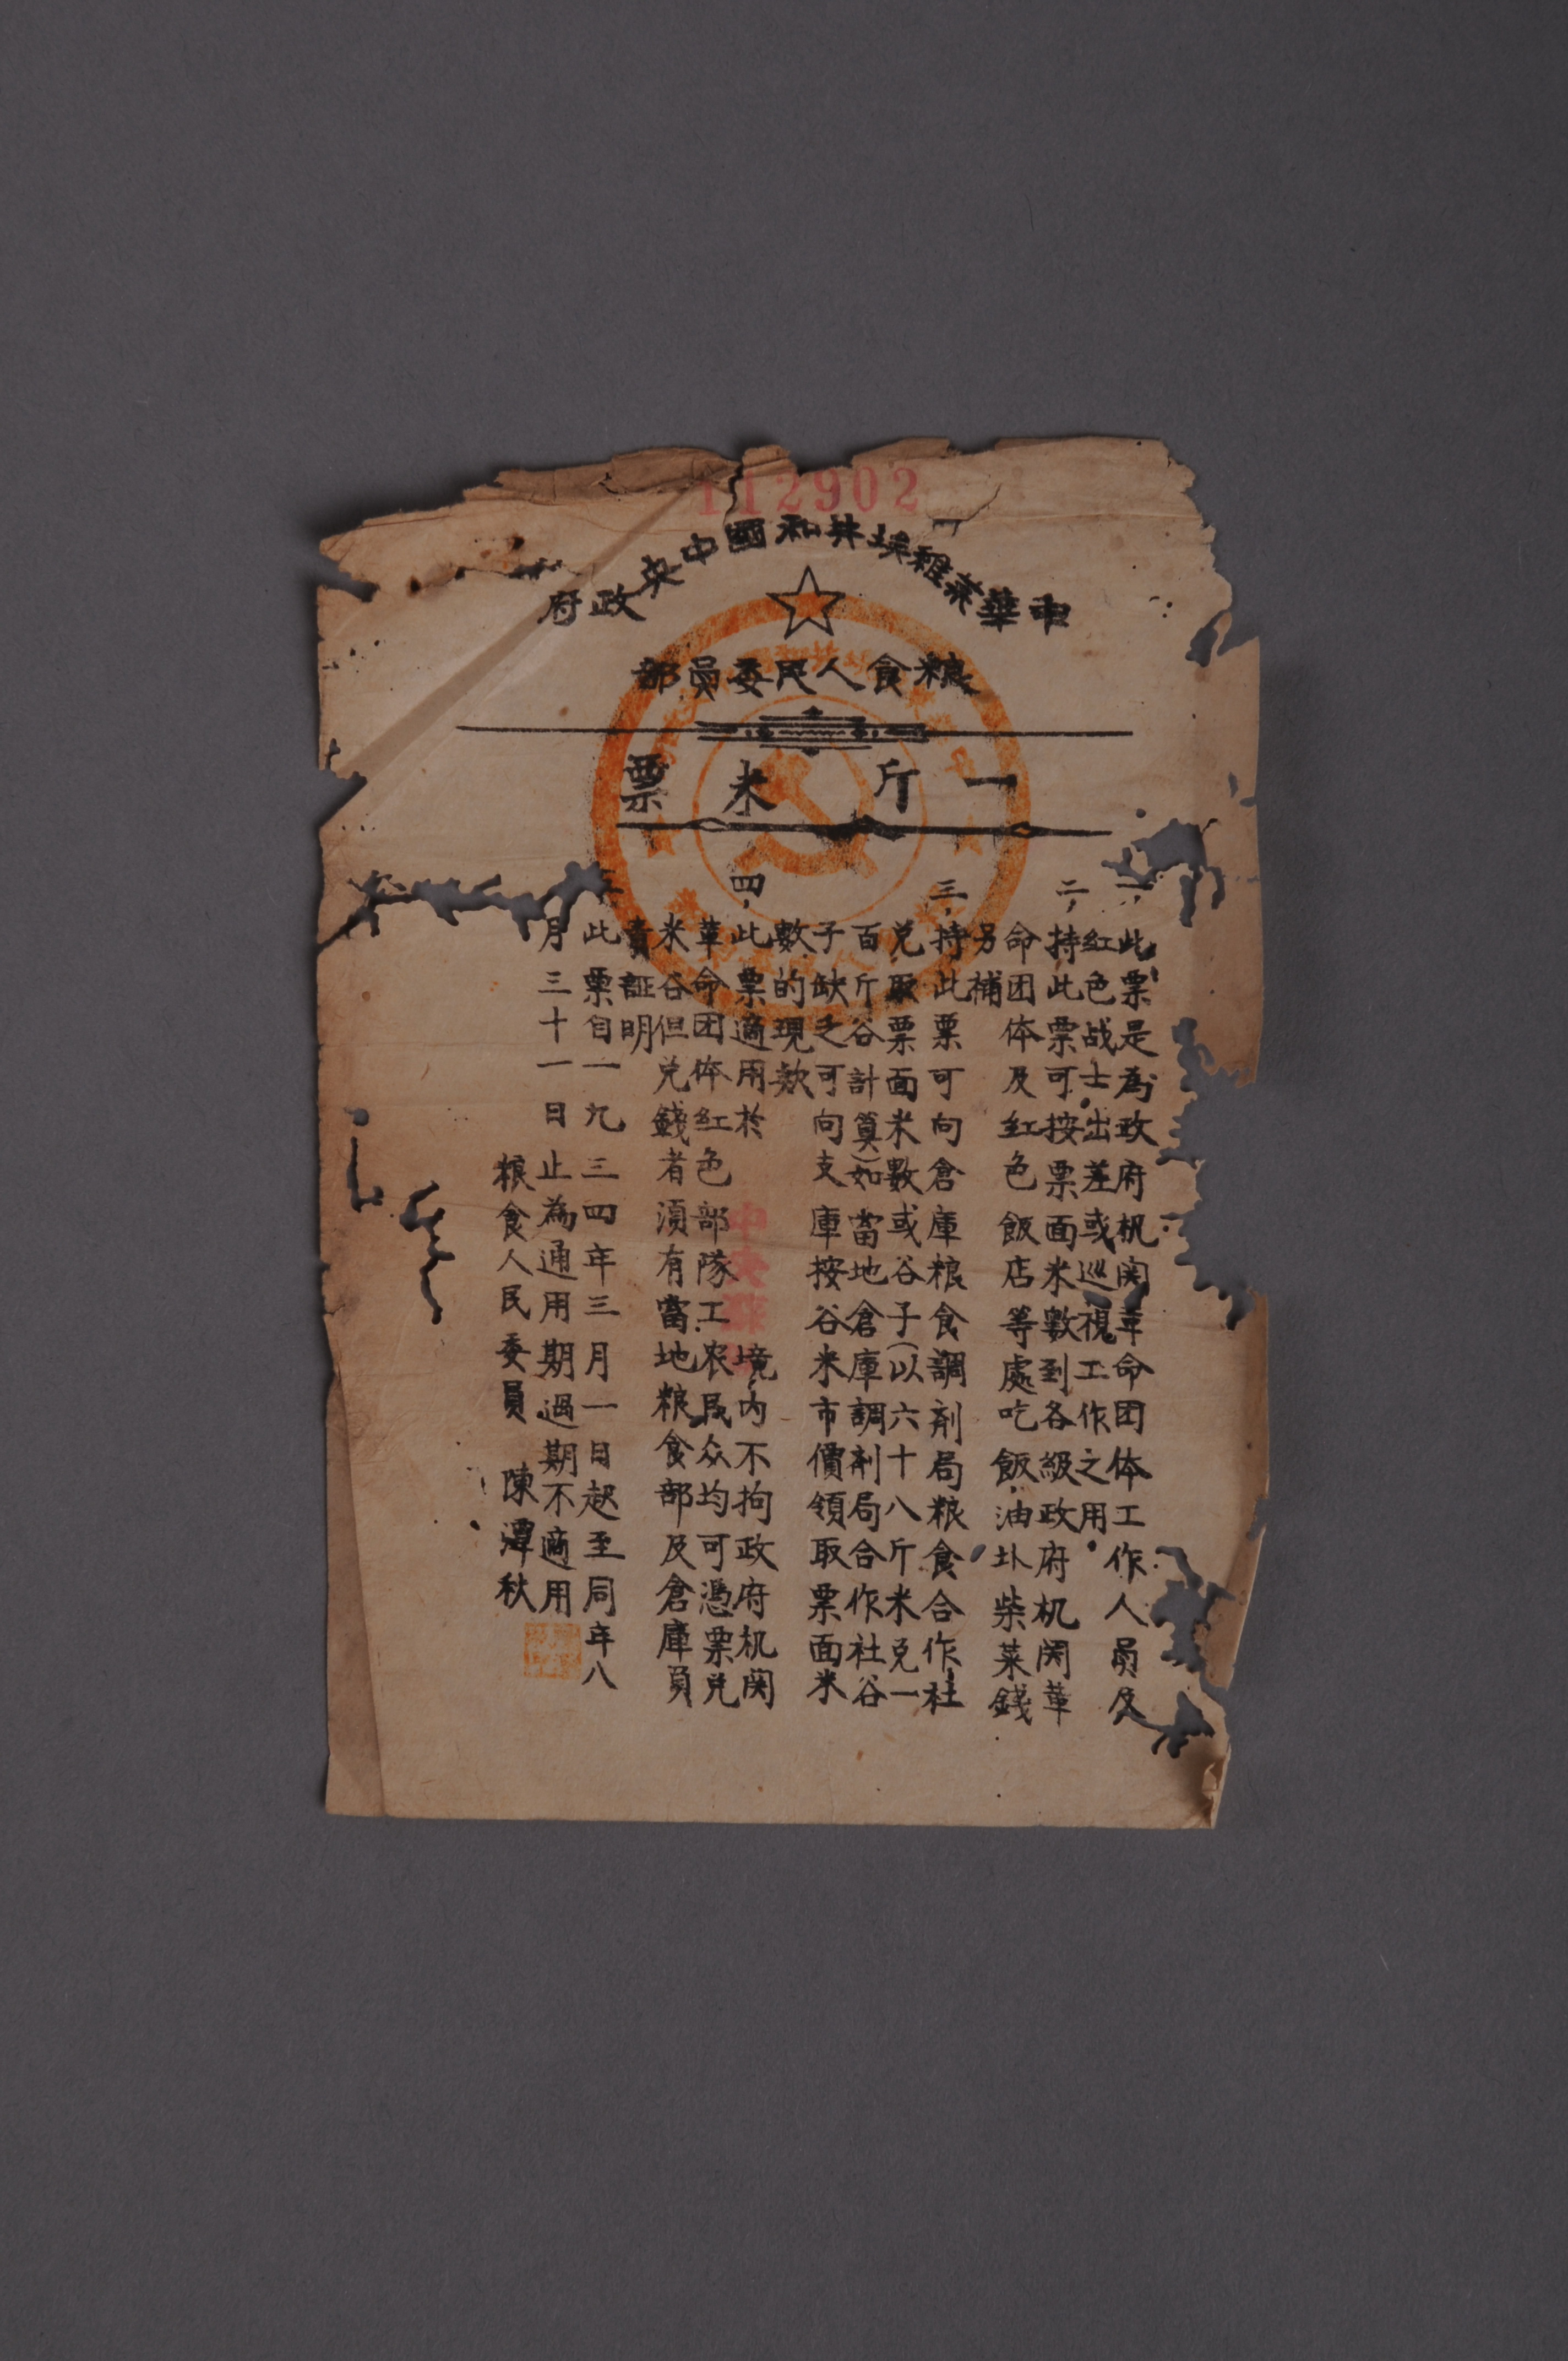 112902
中華蘇維埃共和國中央政府
粮食人民委員部
一斤米票
一,此票是為政府机関革命团体工作人員及
紅色战士出差或巡視工作之用
二,持此票可按票面米數到各級政府机関革
命团体及紅色飯店等處吃飯,油圤柴菜錢
另補
三,持此票可向倉庫粮食調剂局粮食合作社
兑取票面米數或谷子(以六十八斤米兑一
百斤谷計算)如當地倉庫調剂局合作社谷
子缺乏可向支庫按谷米市價領取票面米
數的現欵
四,此票適用於中央蘇區境内不拘政府机関
革命团体紅色部隊工农民众均可憑票兑
米谷但兑錢者須有當地粮食部及倉庫負
責証明
此票自一九三四年三月一日起至同年八
月三十一日止為通用期過期不適用
粮食人民委員 陳潭秋